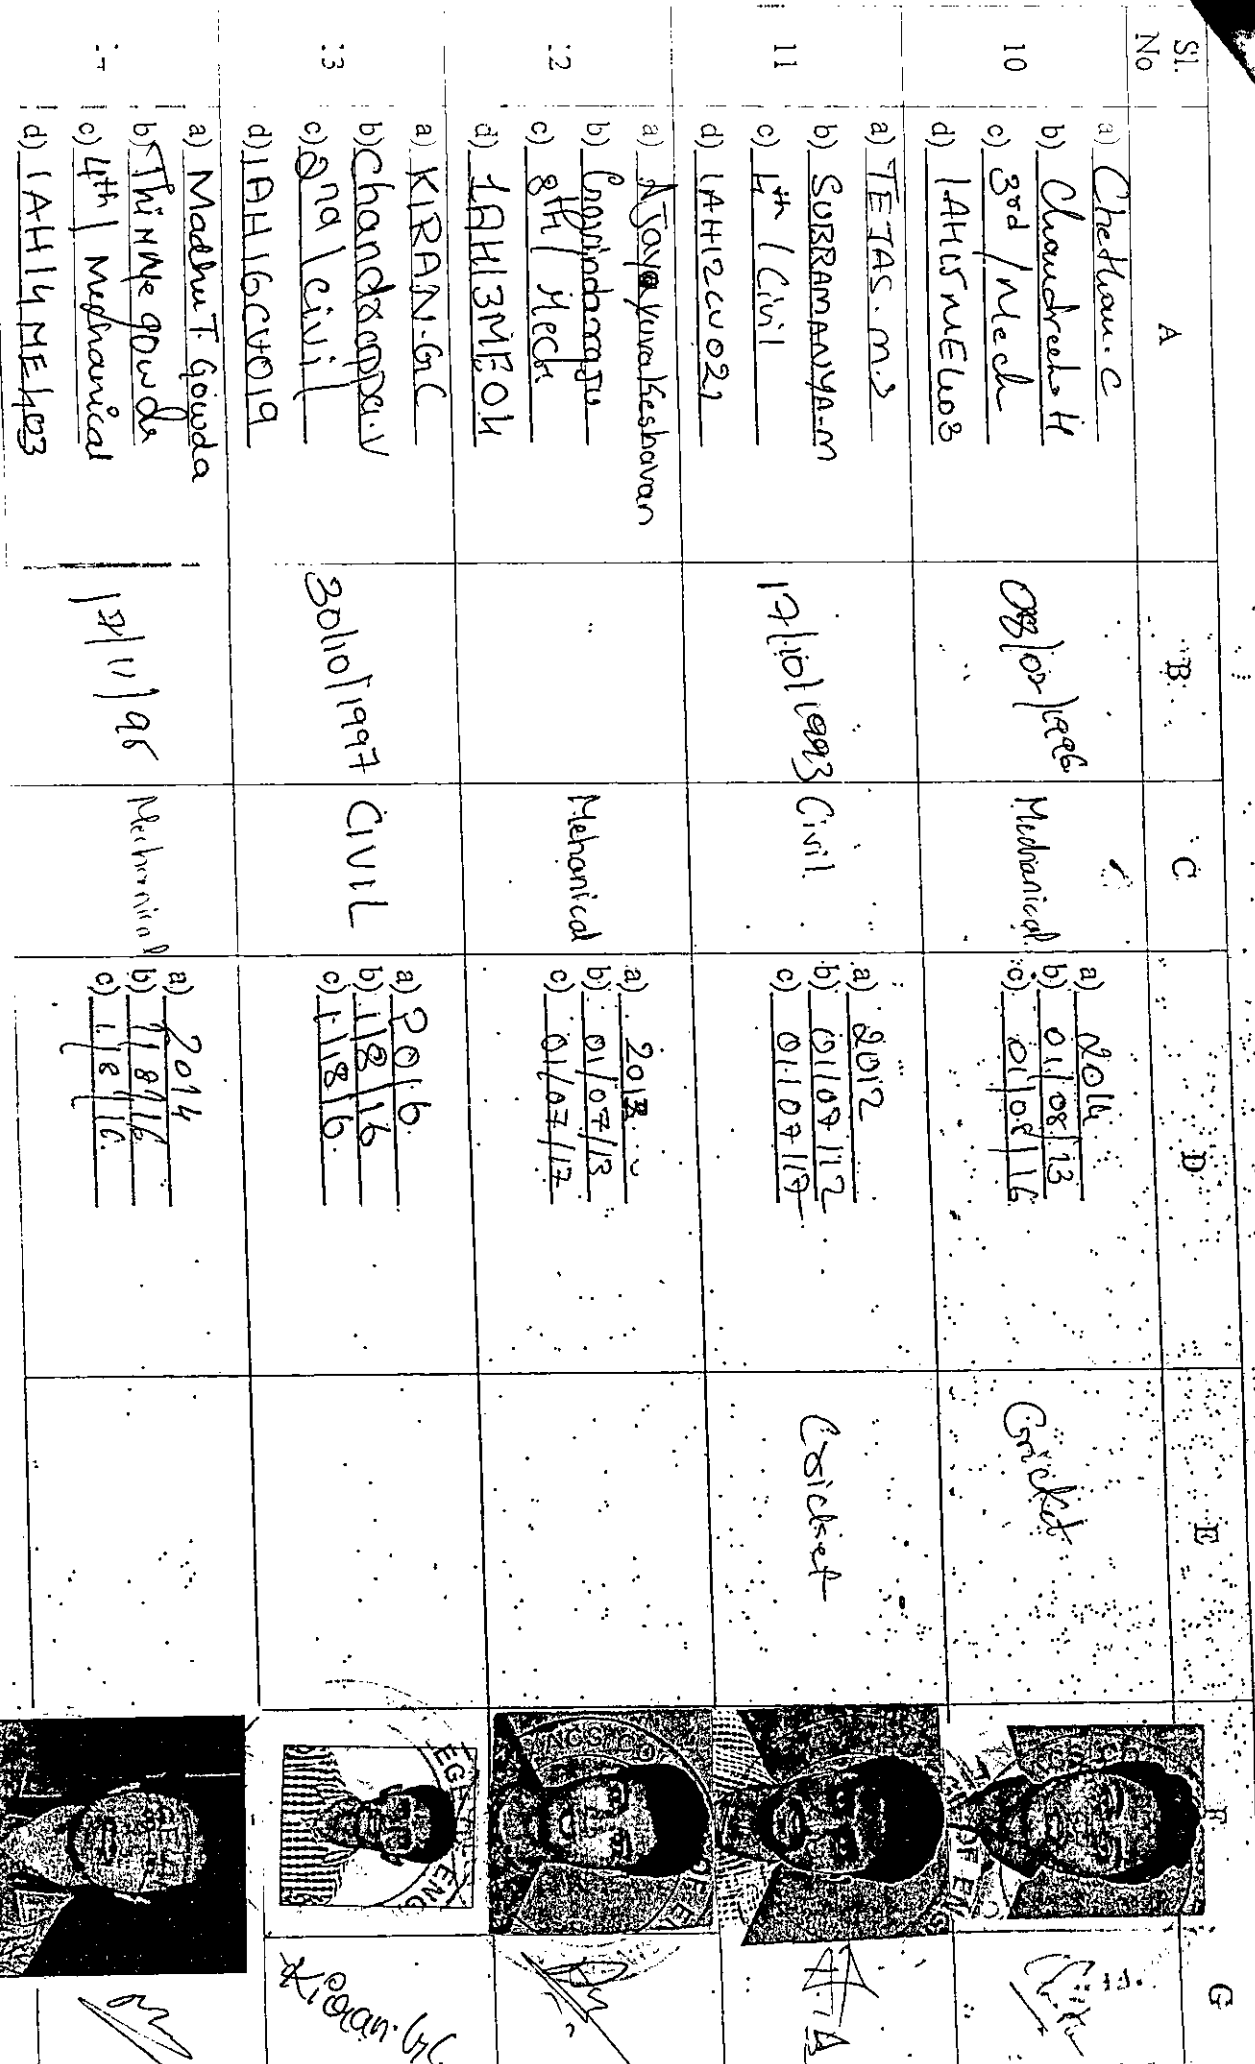 Sl. No A B C D E F G
10
a) Chethan.C
b) Chandreesha H
c) 3rd / Mech
d) 1AH15ME403
Mechanical
a) 2014
b) 01/08/13
c) 01/08/16
Cricket
11
a) TEJAS.M.S
b) SUBRAMANYA.M
c) 4th / Civil
d) 1AH12CV021
17/10/1993
Civil
a) 2012
b) 01/07/12
c) 01/07/17
Cricket
a) Ajay Yuva Keshavan
b) Govindaraju
c) 8th / Mech
d) 1AH13ME04
Mehanical
a) 2013
b) 01/07/13
c) 01/07/17
a) KIRAN.G.C
b) Chandrappa.V
c) 2nd / civil
d) 1AH16CV019
30/10/1997
CIVIL
a) 2016
b) 1/8/16
c) 1/8/16
Kiran.G.C
a) Madhu T. Gowda
b) Thimmegowda
c) 4th / Mechanical
d) 1AH14ME403
17/11/95
Mechanical
a) 2014
b) 1/8/16
c) 1/8/16